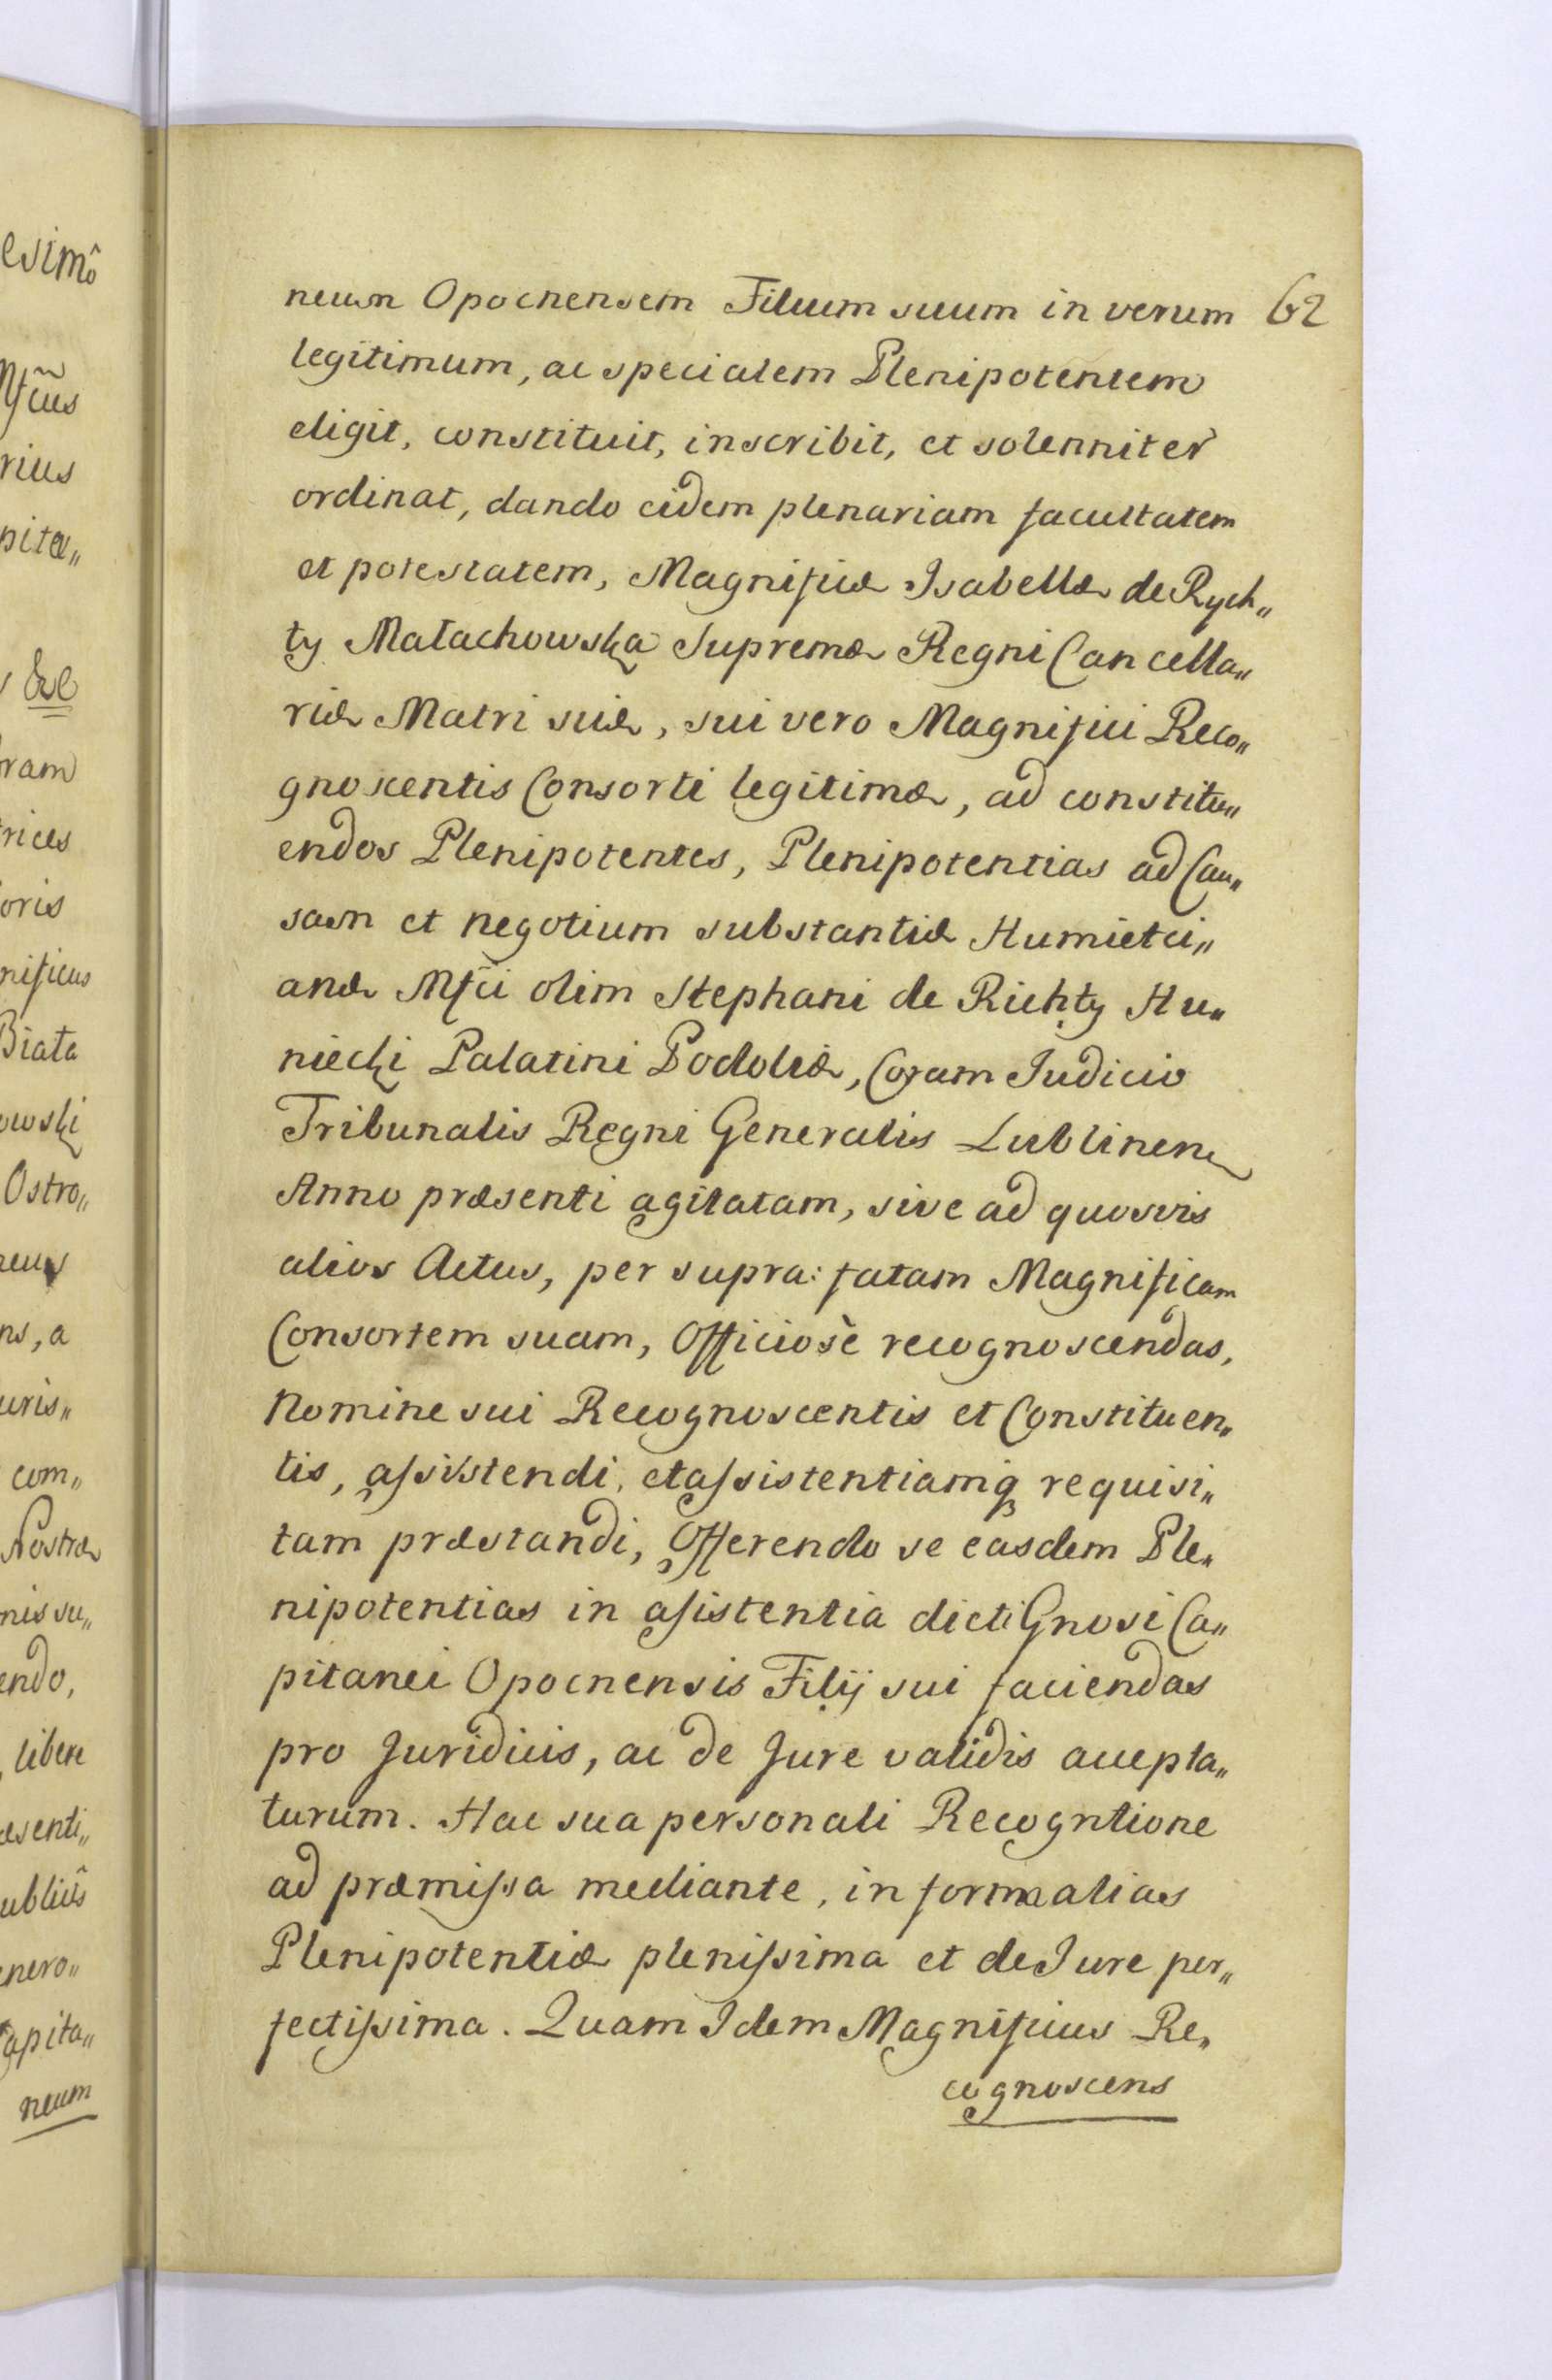 esimô
Mfcius
rius
pita„
s &c
oram
trices
oris
nificus
Biała
owski
Ostro„
neus
ns, a
uris„
com„
Nostræ
nis su„
endo,
, libere
æsenti„
ublicûs
enero„
Capita„
neum
neum Opocnensem Filium suum in verum 62
legitimum, ac specialem Plenipotentem
eligit, constituit, inscribit, et solenniter
ordinat, dando eidem plenariam facultatem
et potestatem, Magnificæ Isabellæ de Rych„
ty Małachowska Supremæ Regni Cancella„
riæ Matri suæ, sui vero Magnifici Reco„
gnoscentis Consorti legitimæ, ad constitu„
endos Plenipotentes, Plenipotentias ad Cau„
sam et negotium substantiæ Humieci„
anæ Mfci olim Stephani de Richty Hu„
niecki Palatini Podoliæ, Coram Judicio
Tribunalis Regni Generalis Lublinen
Anno præsenti agitatam, sive ad quosvis
alios Actus, per supra: fatam Magnificam
Consortem suam, Officiosè recognoscendas,
Nomine sui Recognoscentis et Constituen„
tis, assistendi, etassistentiamq requisi„
tam præstandi, Offerendo se easdem Ple„
nipotentias in asistentia dicti Gnosi Ca„
pitanei Opocnensis Filij sui faciendas
pro Juridicis, ac de Jure validis accepta„
turum. Hac sua personali Recogntione
ad præmissa mediante, in forma alias
Plenipotentiæ plenissima et de Jure per„
fectissima. Quam Idem Magnificus Re„
cognoscens